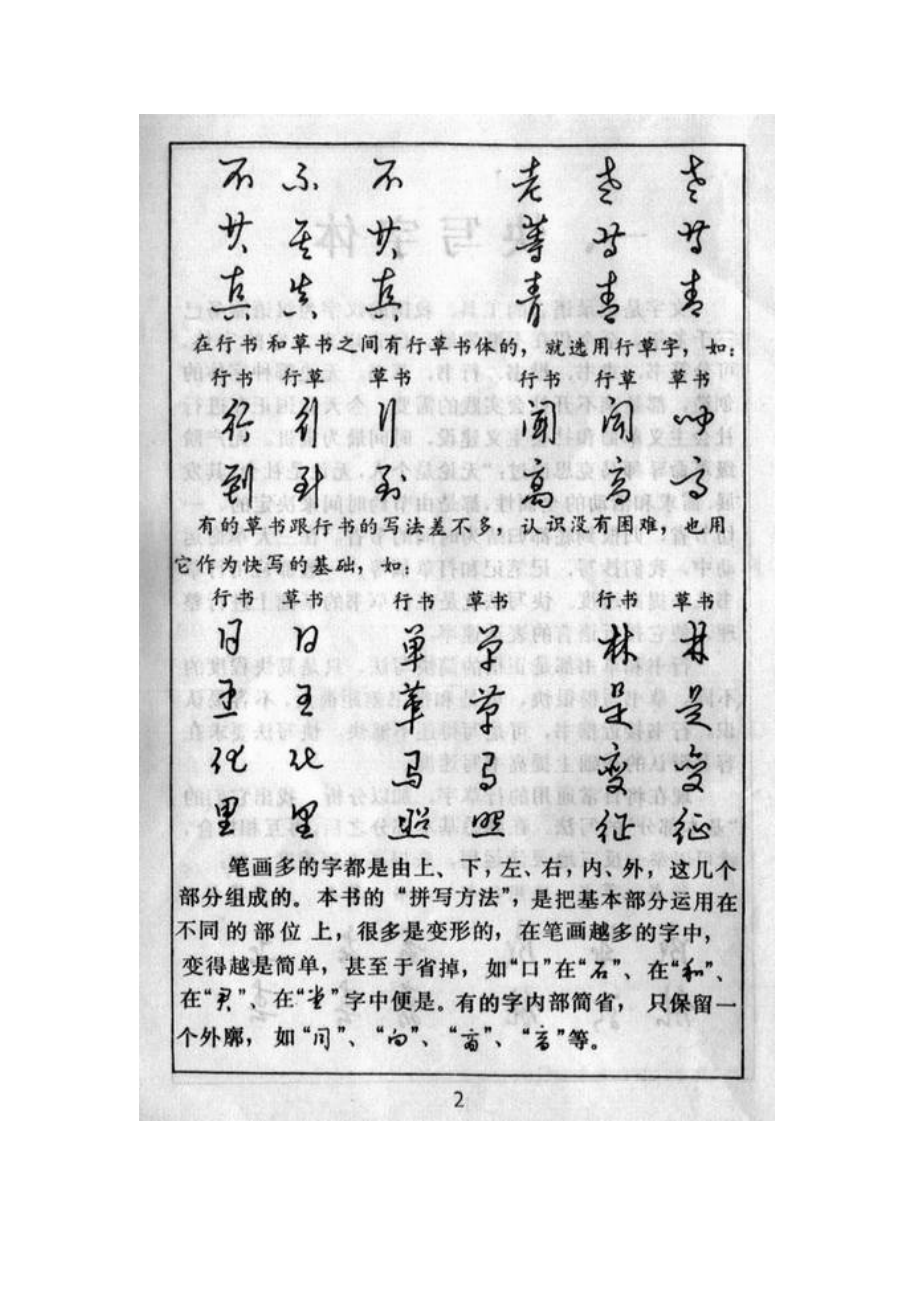 不 不 不 老 老 老
共 共 共 等 等 等
真 真 真 青 青 青
在行书和草书之间有行草书体的，就选用行草字，如：
行书 行草 草书 行书 行草 草书
行 行 行 闻 闻 闻
到 到 到 高 高 高
有的草书跟行书的写法差不多，认识没有困难，也用
它作为快写的基础，如：
行书 草书 行书 草书 行书 草书
日 日 单 单 林 林
王 王 革 草 是 是
化 化 马 马 变 变
里 里 照 照 征 征
笔画多的字都是由上、下，左、右，内、外，这几个
部分组成的。本书的“拼写方法”，是把基本部分运用在
不同的部位上，很多是变形的，在笔画越多的字中，
变得越是简单，甚至于省掉，如“口”在“石”、在“和”、
在“君”、在“堂”字中便是。有的字内部简省，只保留一
个外廓，如“同”、“向”、“”、“”等。
2